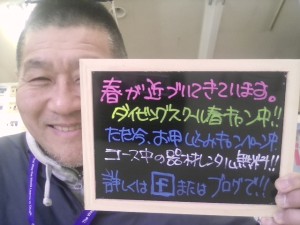 春が近づいてきています。
ダイビングスクール春キャン中!!
ただ今、お申し込みキャンペーン中
コース中の器材レンタル無料!!
詳しくは f またはブログで!!